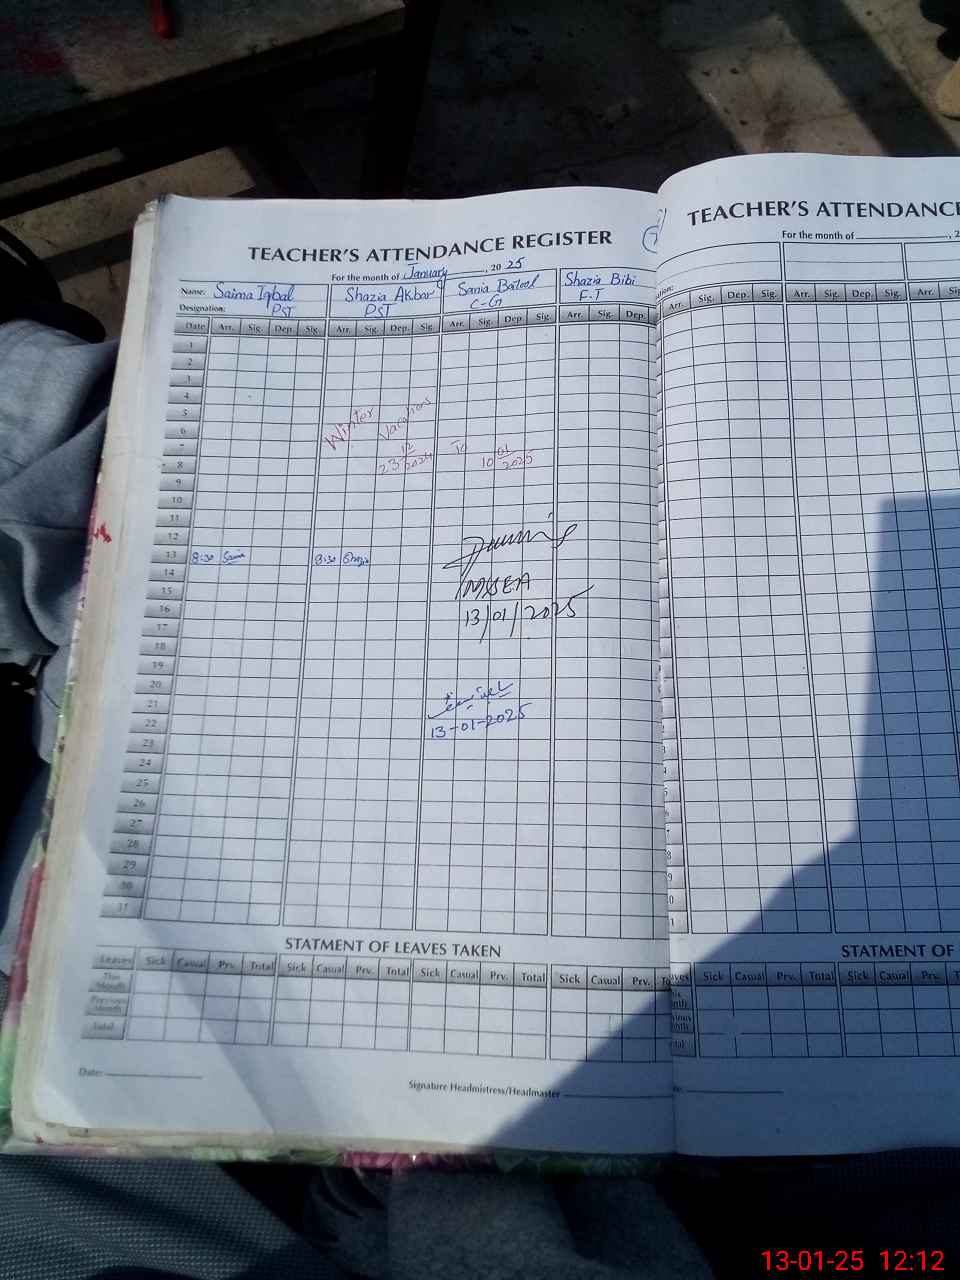 TEACHER'S ATTENDANCE REGISTER
For the month of January, 20 25
Name: Saima Iqbal Shazia Akbar Sania Batool Shazia Bibi
Designation: PST PST C-G F.T
Date Arr. Sig. Dep. Sig. Arr. Sig. Dep. Sig. Arr. Sig. Dep. Sig. Arr. Sig. Dep.
1
2
3
4
5
6
7
8
9
10
11
12
13 8:30 Saima 8:30 Shazia
14
15
16
17
18
19
20
21
22
23
24
25
26
27
28
29
30
31
Winter Vacations
23 12/2024 To 10 01/2025
13/01/2025
13-01-2025
STATMENT OF LEAVES TAKEN
Leaves Sick Casual Prv. Total Sick Casual Prv. Total Sick Casual Prv. Total Sick Casual Prv.
This Month
Previous Month
Total
Date:
Signature Headmistress/Headmaster
TEACHER'S ATTENDANCE
For the month of , 2
Arr. Sig. Dep. Sig. Arr. Sig. Dep. Sig. Arr. Sig.
STATMENT OF
Sick Casual Prv. Total Sick Casual Prv.
13-01-25 12:12